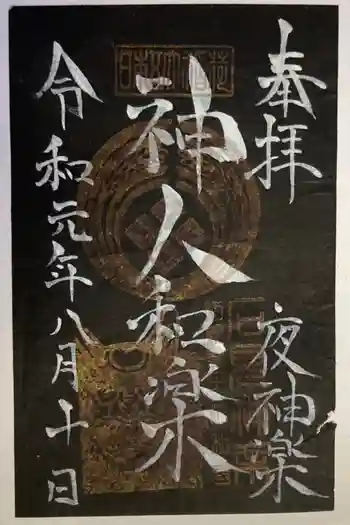 奉拝
夜神楽
神人和楽
令和元年八月十日